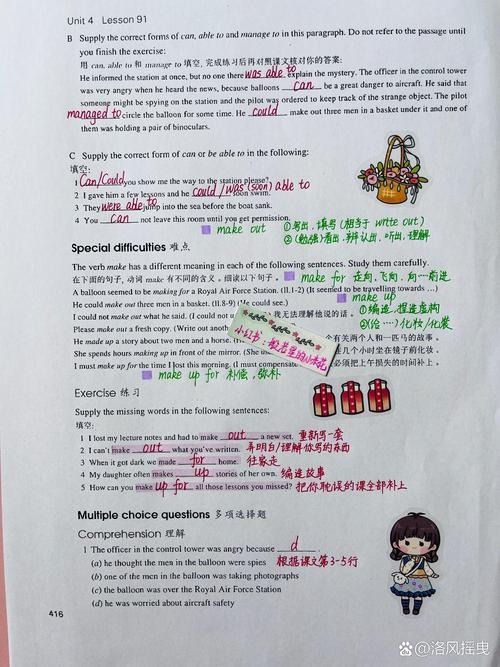 Unit 4 Lesson 91
B Supply the correct forms of can, able to and manage to in this paragraph. Do not refer to the passage until
you finish the exercise:
用 can, able to 和 manage to 填空, 完成练习后再对照课文核对你的答案:
He informed the station at once, but no one there was able to explain the mystery. The officer in the control tower
was very angry when he heard the news, because balloons can be a great danger to aircraft. He said that
someone might be spying on the station and the pilot was ordered to keep track of the strange object. The pilot
managed to circle the balloon for some time. He could make out three men in a basket under it and one of
them was holding a pair of binoculars.
C Supply the correct form of can or be able to in the following:
填空:
1 Can/Could you show me the way to the station please?
2 I gave him a few lessons and he could / was (soon) able to soon swim.
3 They were able to jump into the sea before the boat sank.
4 You can not leave this room until you get permission.
make out ①写出,填写(相当于 write out)
②(勉强)看出,辨认出,听出,理解
Special difficulties 难点
The verb make has a different meaning in each of the following sentences. Study them carefully.
在下面的句子, 动词 make 有不同的含义。细读以下句子。 make for 走向,飞向,向…前进
A balloon seemed to be making for a Royal Air Force Station. (ll.1-2) (It seemed to be travelling towards …)
make up
He could make out three men in a basket. (ll.8-9) (He could see.)
①编造,捏造虚构
I could not make out what he said. (I could not 我无法理解他说的话。
②(给…)化妆/化装
Please make out a fresh copy. (Write out anoth
He made up a story about two men and a horse. (I 有关两个人和一匹马的故事。
She spends hours making up in front of the mirror. (She 几个小时坐在镜子前化妆。
I must make up for the time I lost this morning. (I must compensate 必须把上午损失的时间补上。
小红书:般若里的小木花
make up for 补偿,弥补
Exercise 练习
Supply the missing words in the following sentences:
填空:
1 I lost my lecture notes and had to make out a new set. 重新写一套
2 I can't make out what you've written. 弄明白/理解你写的东西
3 When it got dark we made for home. 往家走
4 My daughter often makes up stories of her own. 编造故事
5 How can you make up for all those lessons you missed? 把你耽误的课全部补上
Multiple choice questions 多项选择题
Comprehension 理解
1 The officer in the control tower was angry because d .
(a) he thought the men in the balloon were spies 根据课文第3-5行
(b) one of the men in the balloon was taking photographs
(c) the balloon was over the Royal Air Force Station
(d) he was worried about aircraft safety
416
@洛风摇曳